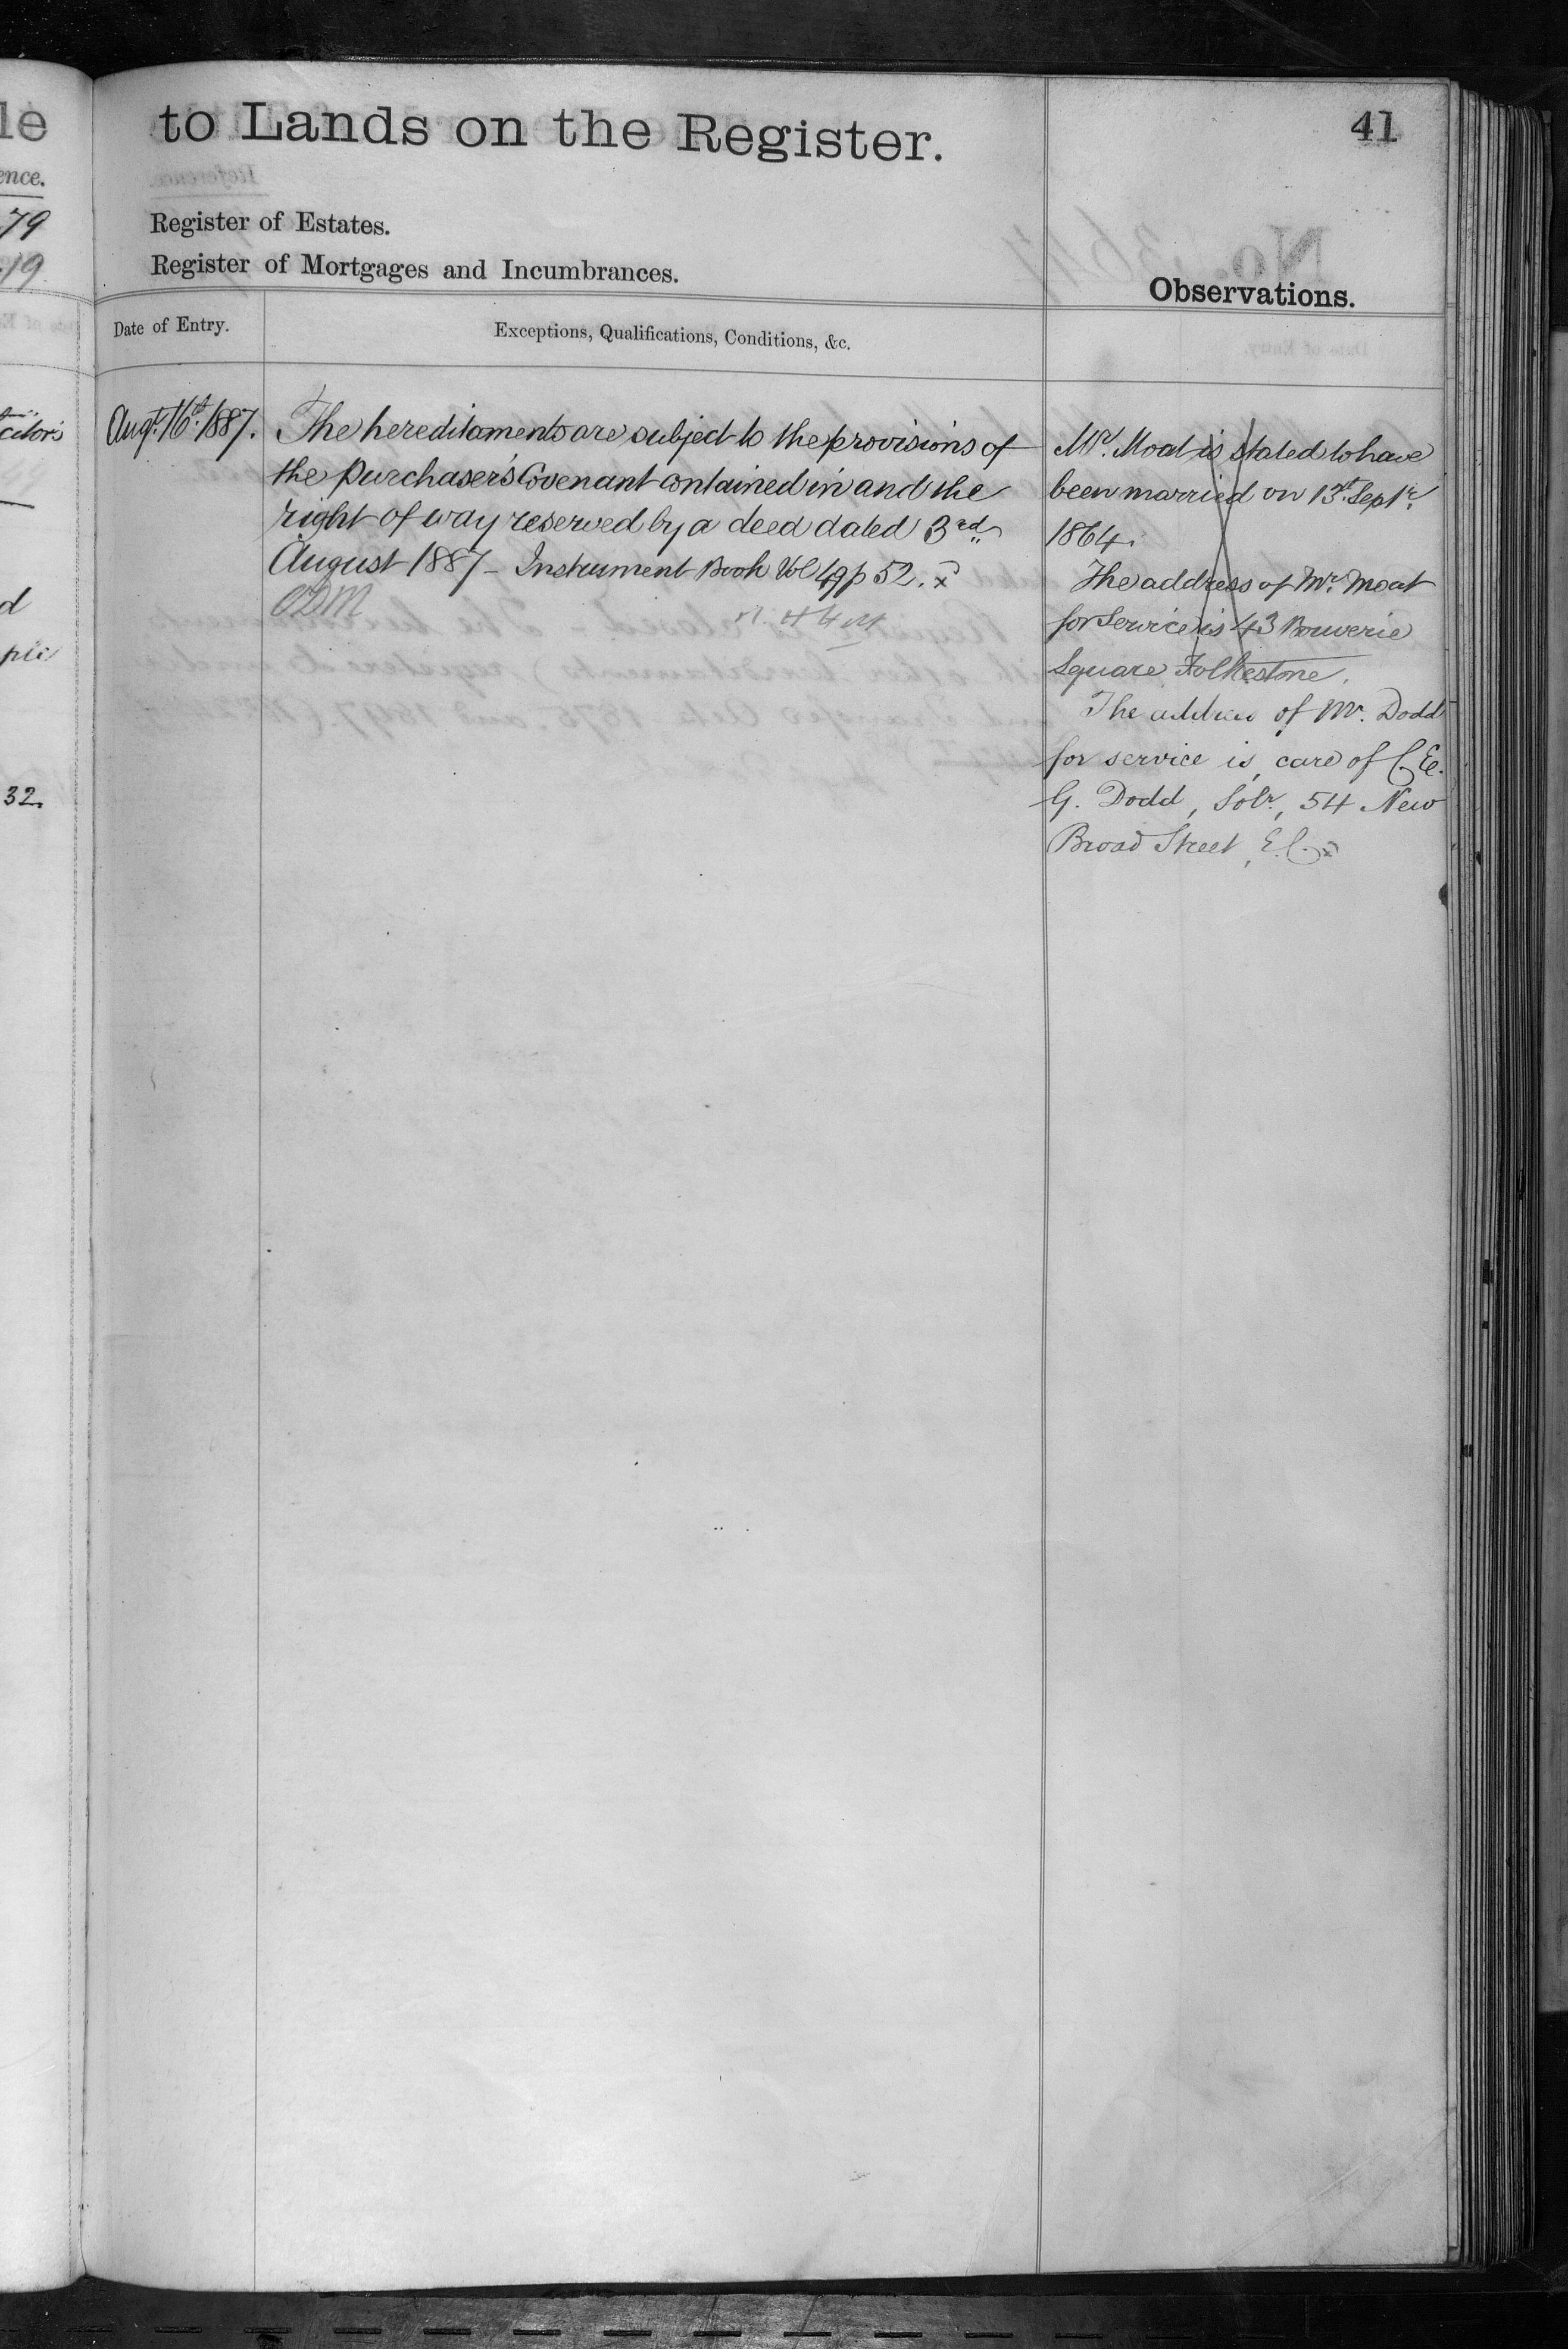 le
ence.
79
19
citors
d
32.
to Lands on the Register.
41
Register of Estates.
Register of Mortgages and Incumbrances.
Observations.
Date of Entry.
Exceptions, Qualifications, Conditions, &c.
Augt. 16th. 1887.
The hereditaments are subject to the provisions of
the purchaser's Covenant contained in and the
right of way reserved by a deed dated 3rd
August 1887 - Instrument Book Vol 49 p 52. x
ODM
Mr. Moat is stated to have
been married on 13th Septr.
1864.
The address of Mr. Moat
for Service is 43 Bouverie
Square Folkestone.
The address of Mr. Dodd
for service is, care of C. E.
G. Dodd, Solr., 54 New
Broad Street, E.C. x